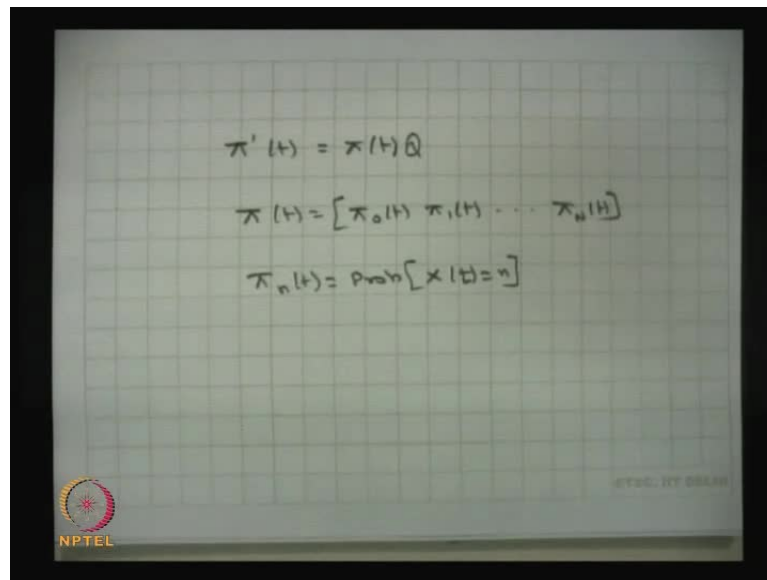 π'(t) = π(t)Q
π(t) = [π₀(t) π₁(t) ... π_N(t)]
π_n(t) = Prob[X(t)=n]
ETSC, IIT DELHI
NPTEL